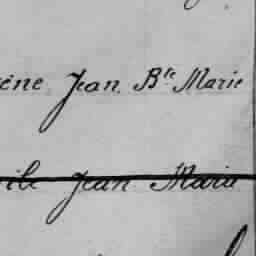 ène Jean Bte Marie
ile Jean Marie